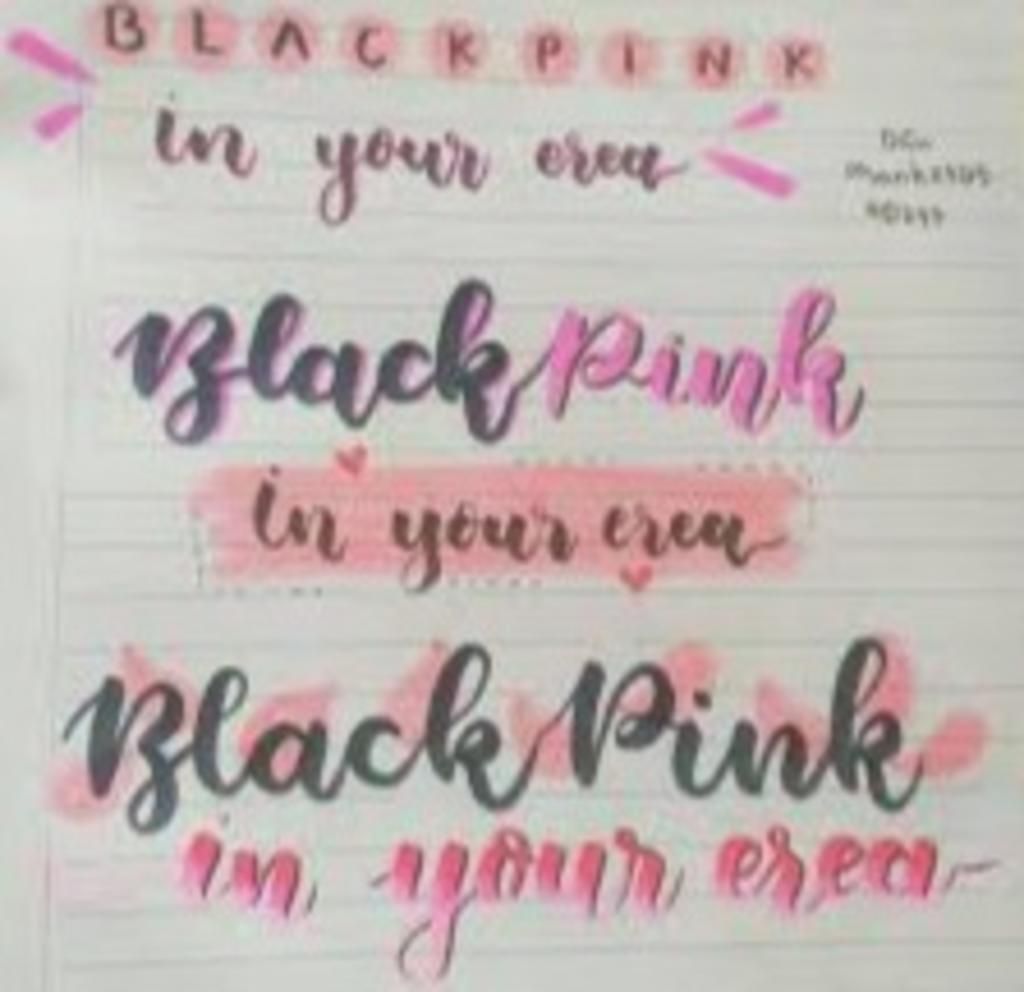 BLACKPINK
in your erea
BlackPink
in your erea
BlackPink
in your erea